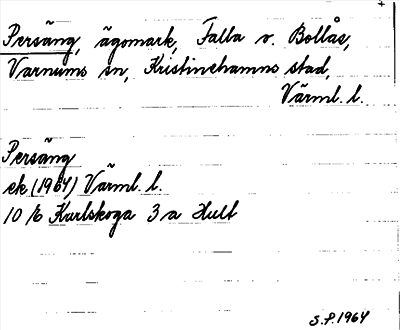 Persäng, ägomark, Falla v. Bollås,
Varnums sn, Kristinehamns stad,
Värml. l.
Persäng
ek (1964) Värml. l.
10 E Karlskoga 3 a Hult
S.P. 1964